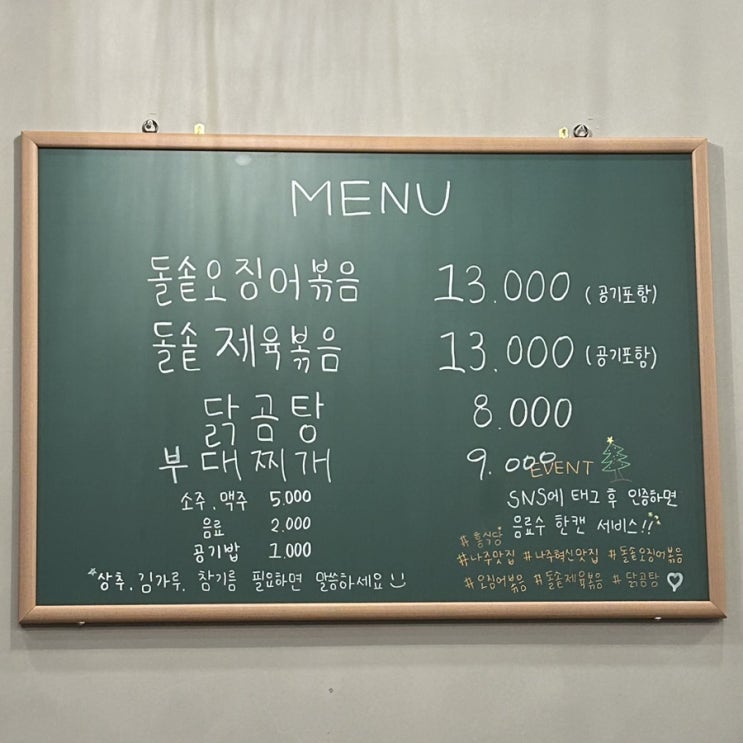 MENU
돌솥오징어볶음 13.000 (공기포함)
돌솥 제육볶음 13.000 (공기포함)
닭곰탕 8.000
부대찌개 9.000
소주, 맥주 5.000
음료 2.000
공기밥 1.000
*상추, 김가루, 참기름 필요하면 말씀하세요
EVENT
SNS에 태그 후 인증하면
음료수 한캔 서비스!!
#홍식당
#나주맛집 #나주혁신맛집 #돌솥오징어볶음
#오징어볶음 #돌솥제육볶음 #닭곰탕